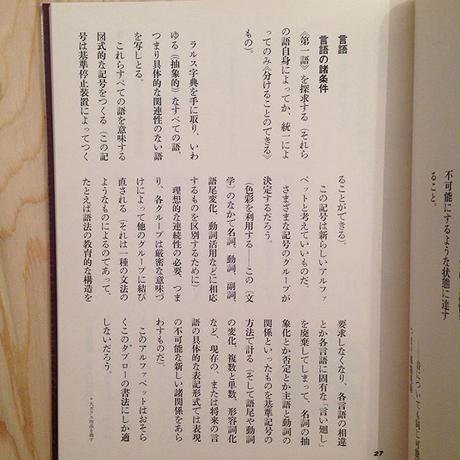 不可能にするような状態に達す
ること。
言語
言語の諸条件
《第一語》を探求する（それら
の語自身によってか、統一によ
ってのみ《分けることのできる》
もの）。
ラルス字典を手に取り、いわ
ゆる《抽象的》なすべての語、
つまり具体的な関連性のない語
を写しとる。
これらすべての語を意味する
図式的な記号をつくる（この記
号は基準停止装置によってつく
ることができる）。
この記号は新らしいアルファ
ベットと考えていいものだ。
さまざまな記号のグループが
決定するだろう。
（色彩を利用する——この〔文
学〕のなかで名詞、動詞、副詞、
語尾変化、動詞活用などに相応
するものを区別するために）
理想的な連続性の必要、つま
り、各グループは厳密な意味づ
けによって他のグループに結び
直される（それは一種の文法の
ようなものによるのであって、
たとえば語法の教育的な構造を
要求しなくなり、各言語の相違
とか各言語に固有な「言い廻し」
を廃棄してしまって、名詞の抽
象化とか否定とか主語と動詞の
関係といったものを基準記号の
方法で計る（そして語尾や動詞
の変化、複数と単数、形容詞化
など、現存の、または将来の言
語の具体的な表記形式では表現
の不可能な新しい諸関係をあら
わすものだ）。
このアルファベットはおそら
くこのタブローの書法にしか適
しないだろう。
27